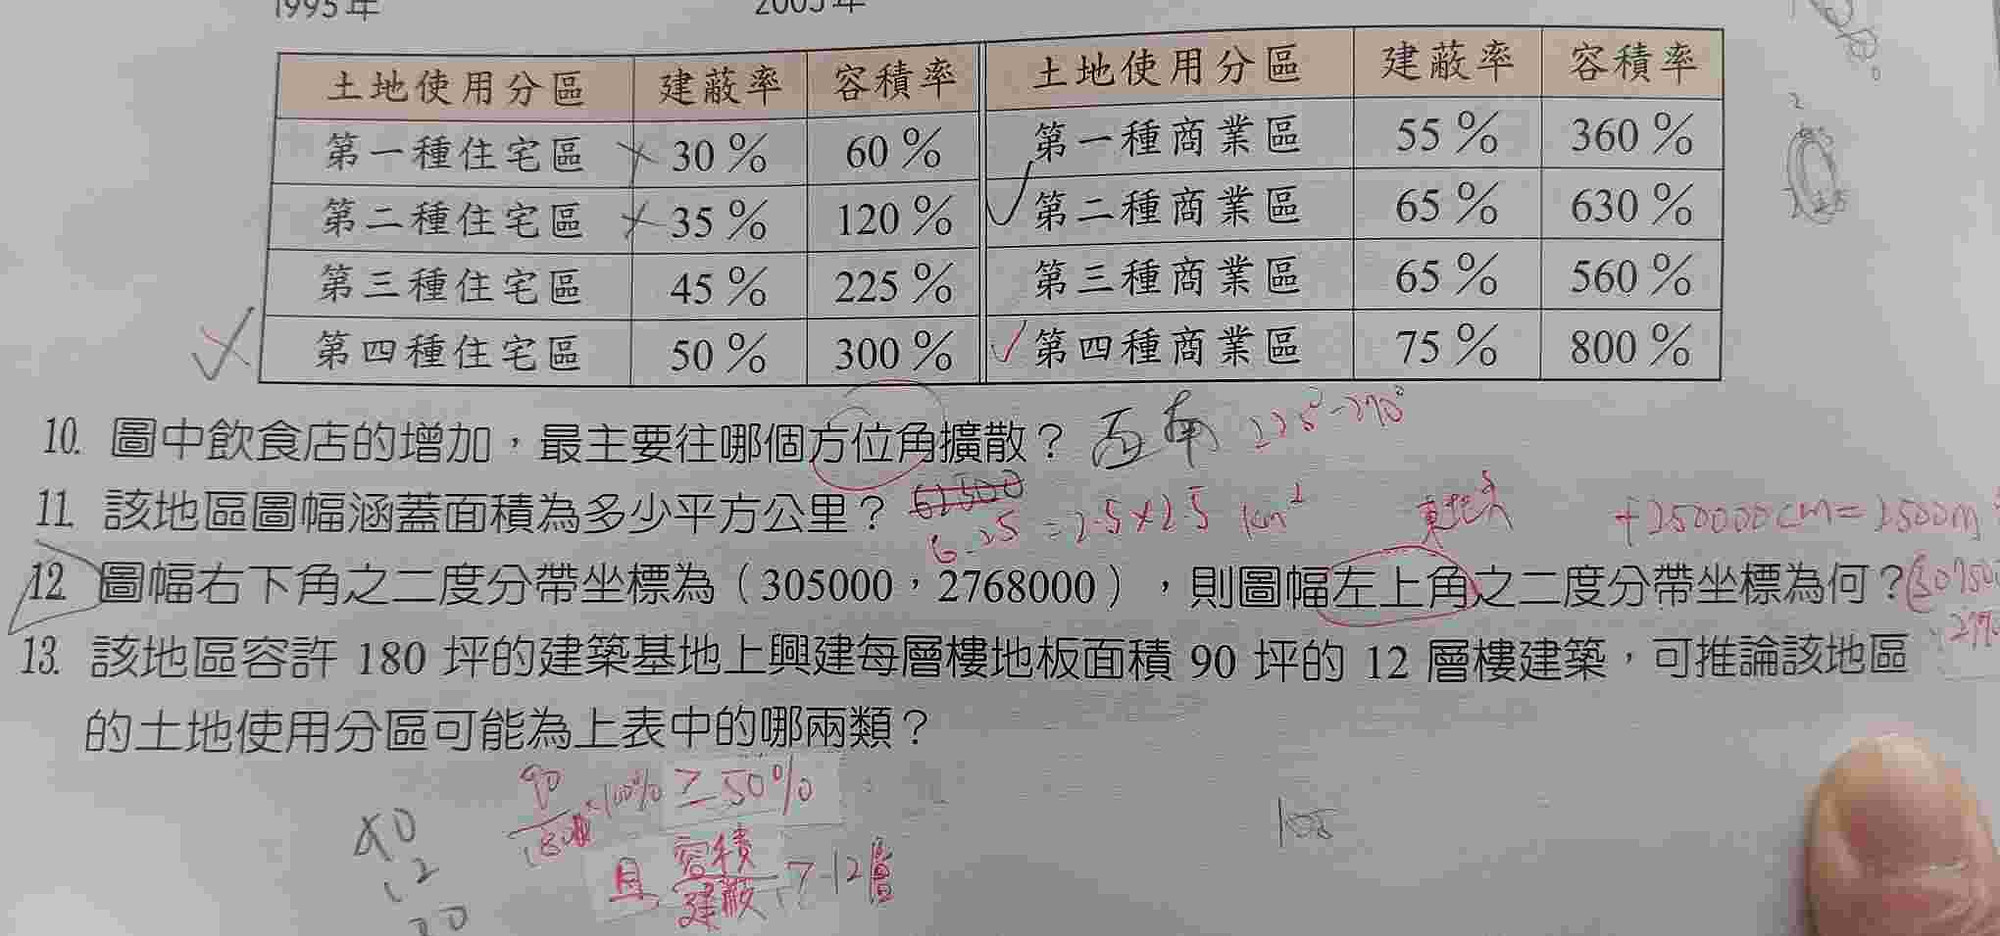 1995年 2005年
土地使用分區 建蔽率 容積率 土地使用分區 建蔽率 容積率
第一種住宅區 30% 60% 第一種商業區 55% 360%
第二種住宅區 35% 120% 第二種商業區 65% 630%
第三種住宅區 45% 225% 第三種商業區 65% 560%
第四種住宅區 50% 300% 第四種商業區 75% 800%
10. 圖中飲食店的增加，最主要往哪個方位角擴散？ 西南 225°-270°
11. 該地區圖幅涵蓋面積為多少平方公里？ 62500
6.25 = 2.5×2.5 km² +250000cm=2500m
12. 圖幅右下角之二度分帶坐標為（305000，2768000），則圖幅左上角之二度分帶坐標為何？
13. 該地區容許 180 坪的建築基地上興建每層樓地板面積 90 坪的 12 層樓建築，可推論該地區
的土地使用分區可能為上表中的哪兩類？
90
180坪 ×100% ≥ 50%
且 容積
建蔽 > 12層